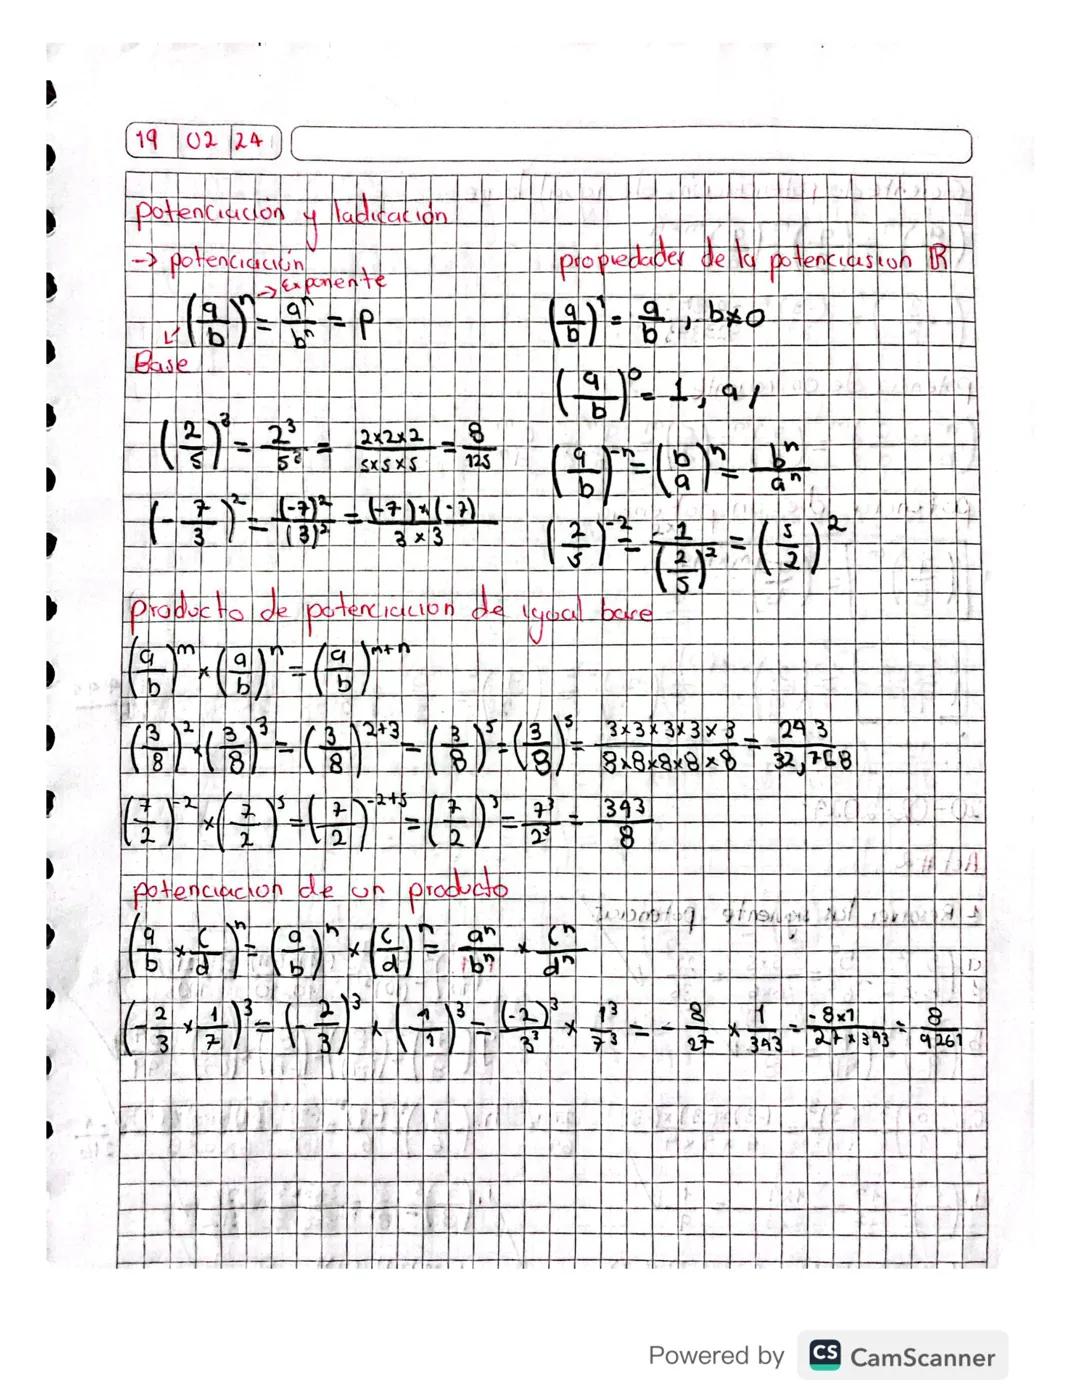 19 02 24
potenciación y ladicación
-> potenciación
-> Exponente
(a/b)^n = a^n/b^n = p
Base
(2/5)^3 = 2^3/5^3 = 2x2x2/5x5x5 = 8/125
(-7/3)^2 = (-7)^2/(3)^2 = (-7)x(-7)/3x3
propiedader de la potenciasion R
(a/b)^1 = a/b, b≠0
(a/b)^0 = 1, a/
(a/b)^-n = (b/a)^n = b^n/a^n
(2/5)^-2 = 1/(2/5)^2 = (5/2)^2
producto de potenciacion de igual base
(a/b)^m x (a/b)^n = (a/b)^m+n
(3/8)^2 x (3/8)^3 = (3/8)^2+3 = (3/8)^5 = (3/8)^5 = 3x3x3x3x3/8x8x8x8x8 = 243/32,768
(7/2)^-2 x (7/2)^5 = (7/2)^-2+5 = (7/2)^3 = 7^3/2^3 = 343/8
potenciacion de un producto
(a/b x c/d)^n = (a/b)^n x (c/d)^n = a^n/b^n x c^n/d^n
(-2/3 x 1/7)^3 = (-2/3)^3 x (1/1)^3 = (-2)^3/3^3 x 1^3/7^3 = -8/27 x 1/343 = -8x1/27x343 = 8/9261
Powered by CS CamScanner